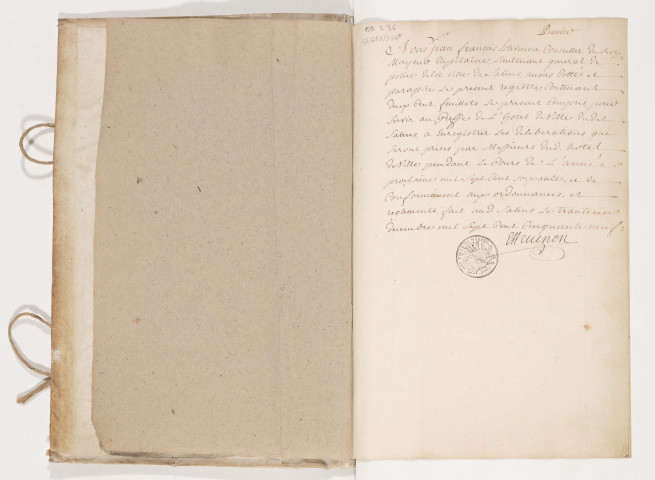 Premier
Nous Jean François Conseiller du Roy
Mayeur Capitaine Lieutenant general de
police de la ville de Salins, avons Cotté et
paraphé Le present registre Contenant
deux Cent feuillets Le present Compris pour
servir au Greffe de L'hotel de Ville dudit
Salins a Enregistrer Les deliberations qui
seront prises par Messieurs dud. hotel
de Ville pendant Le Cours de L'année
prochaine mil Sept Cent soixante, et de
Conformement aux ordonnances, et
reglements, fait aud. Salins Le trente un
decembre mil Sept Cent Cinquante neuf